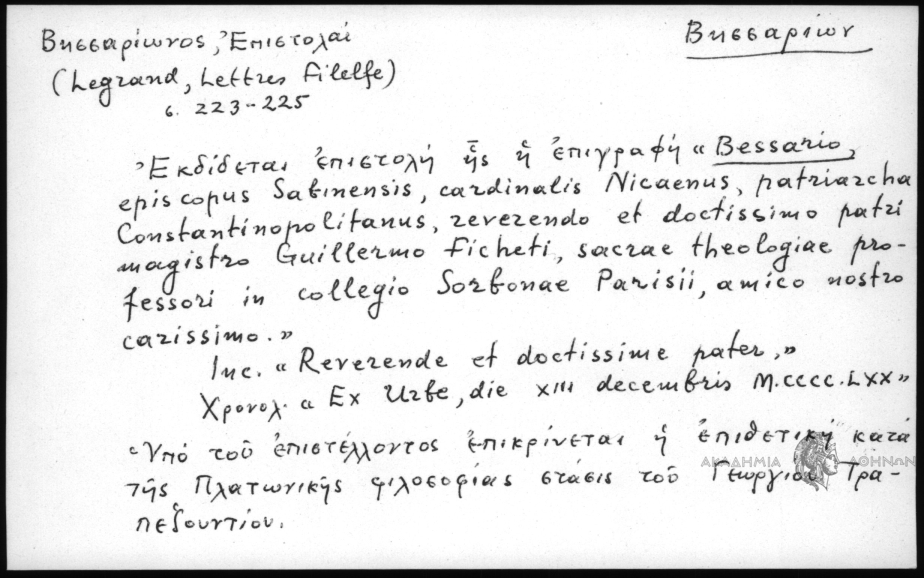 Βησσαρίωνος, Ἐπιστολαί
Βησσαρίων
(Legrand, Lettres Filelfe)
σ. 223-225
Ἐκδίδεται ἐπιστολή ἧς ἡ ἐπιγραφή « Bessario,
episcopus Sabinensis, cardinalis Nicaenus, patriarcha
Constantinopolitanus, reverendo et doctissimo patri
magistro Guillermo Ficheti, sacrae theologiae pro-
fessori in collegio Sorbonae Parisii, amico nostro
carissimo. »
Inc. « Reverende et doctissime pater, »
Χρονολ. « Ex Urbe, die XIII decembris M.CCCC.LXX »
Ὑπό τοῦ ἐπιστέλλοντος ἐπικρίνεται ἡ ἐπιθετική κατά
τῆς Πλατωνικῆς φιλοσοφίας στάσις τοῦ Γεωργίου Τρα-
πεζουντίου.
ΑΚΑΔΗΜΙΑ ΑΘΗΝΩΝ